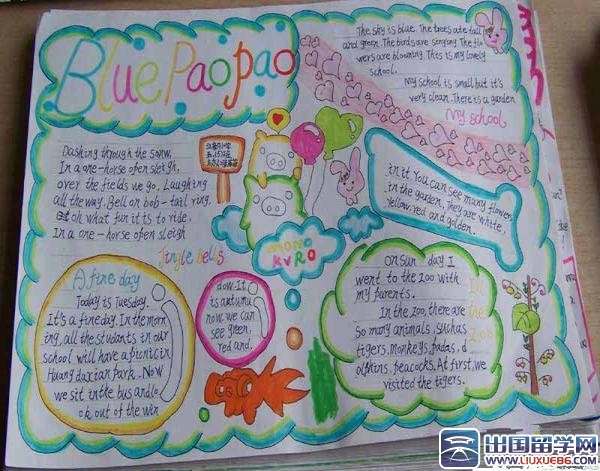 Blue Paopao
The sky is blue. The trees are tall
and green. The birds are singing. The flo
wers are blowning. This is my lovely
school.
My school is small but it's
very clean. There is a garden
My school
in it You can see many flowers
in the garden. They are white,
Yellow, red and golden.
Dashing through the sonw,
In a one-horse open sleigh,
over the fields we go, Laughing
all the way. Bell on bob-tail ring.
oh what fun it is to ride.
In a one-horse open sleigh
Jingle bells
MONO
KURO
A fine day
Today is Tuesday.
It's a fine day. In the mor
ing, all the students in our
school will have a picnic in
Huang daxian park. Now
we sit in the bus and lo
ok out of the win
dow. It
is autumn
now we can
see green,
red and.
on sun day I
went to the zoo with
my parents.
In the zoo, there are
so many animals, suchas
tigers, monkeys, padas, d
olphins, peacocks. At first, we
visited the tigers.
In
the
Zoo
出国留学网
WWW.LIUXUE86.COM